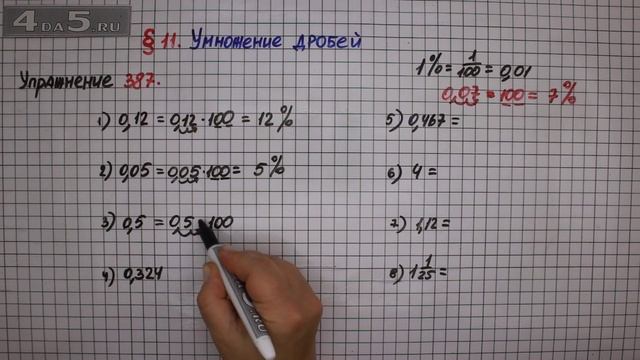 4DA5.RU
§ 11. Умножение дробей
Упражнение 387.
1% = 1/100 = 0,01
0,07 • 100 = 7 %
1) 0,12 = 0,12 · 100 = 12 %
2) 0,05 = 0,05 · 100 = 5 %
3) 0,5 = 0,5 · 100
4) 0,324
5) 0,467 =
6) 4 =
7) 1,12 =
8) 1 1/25 =